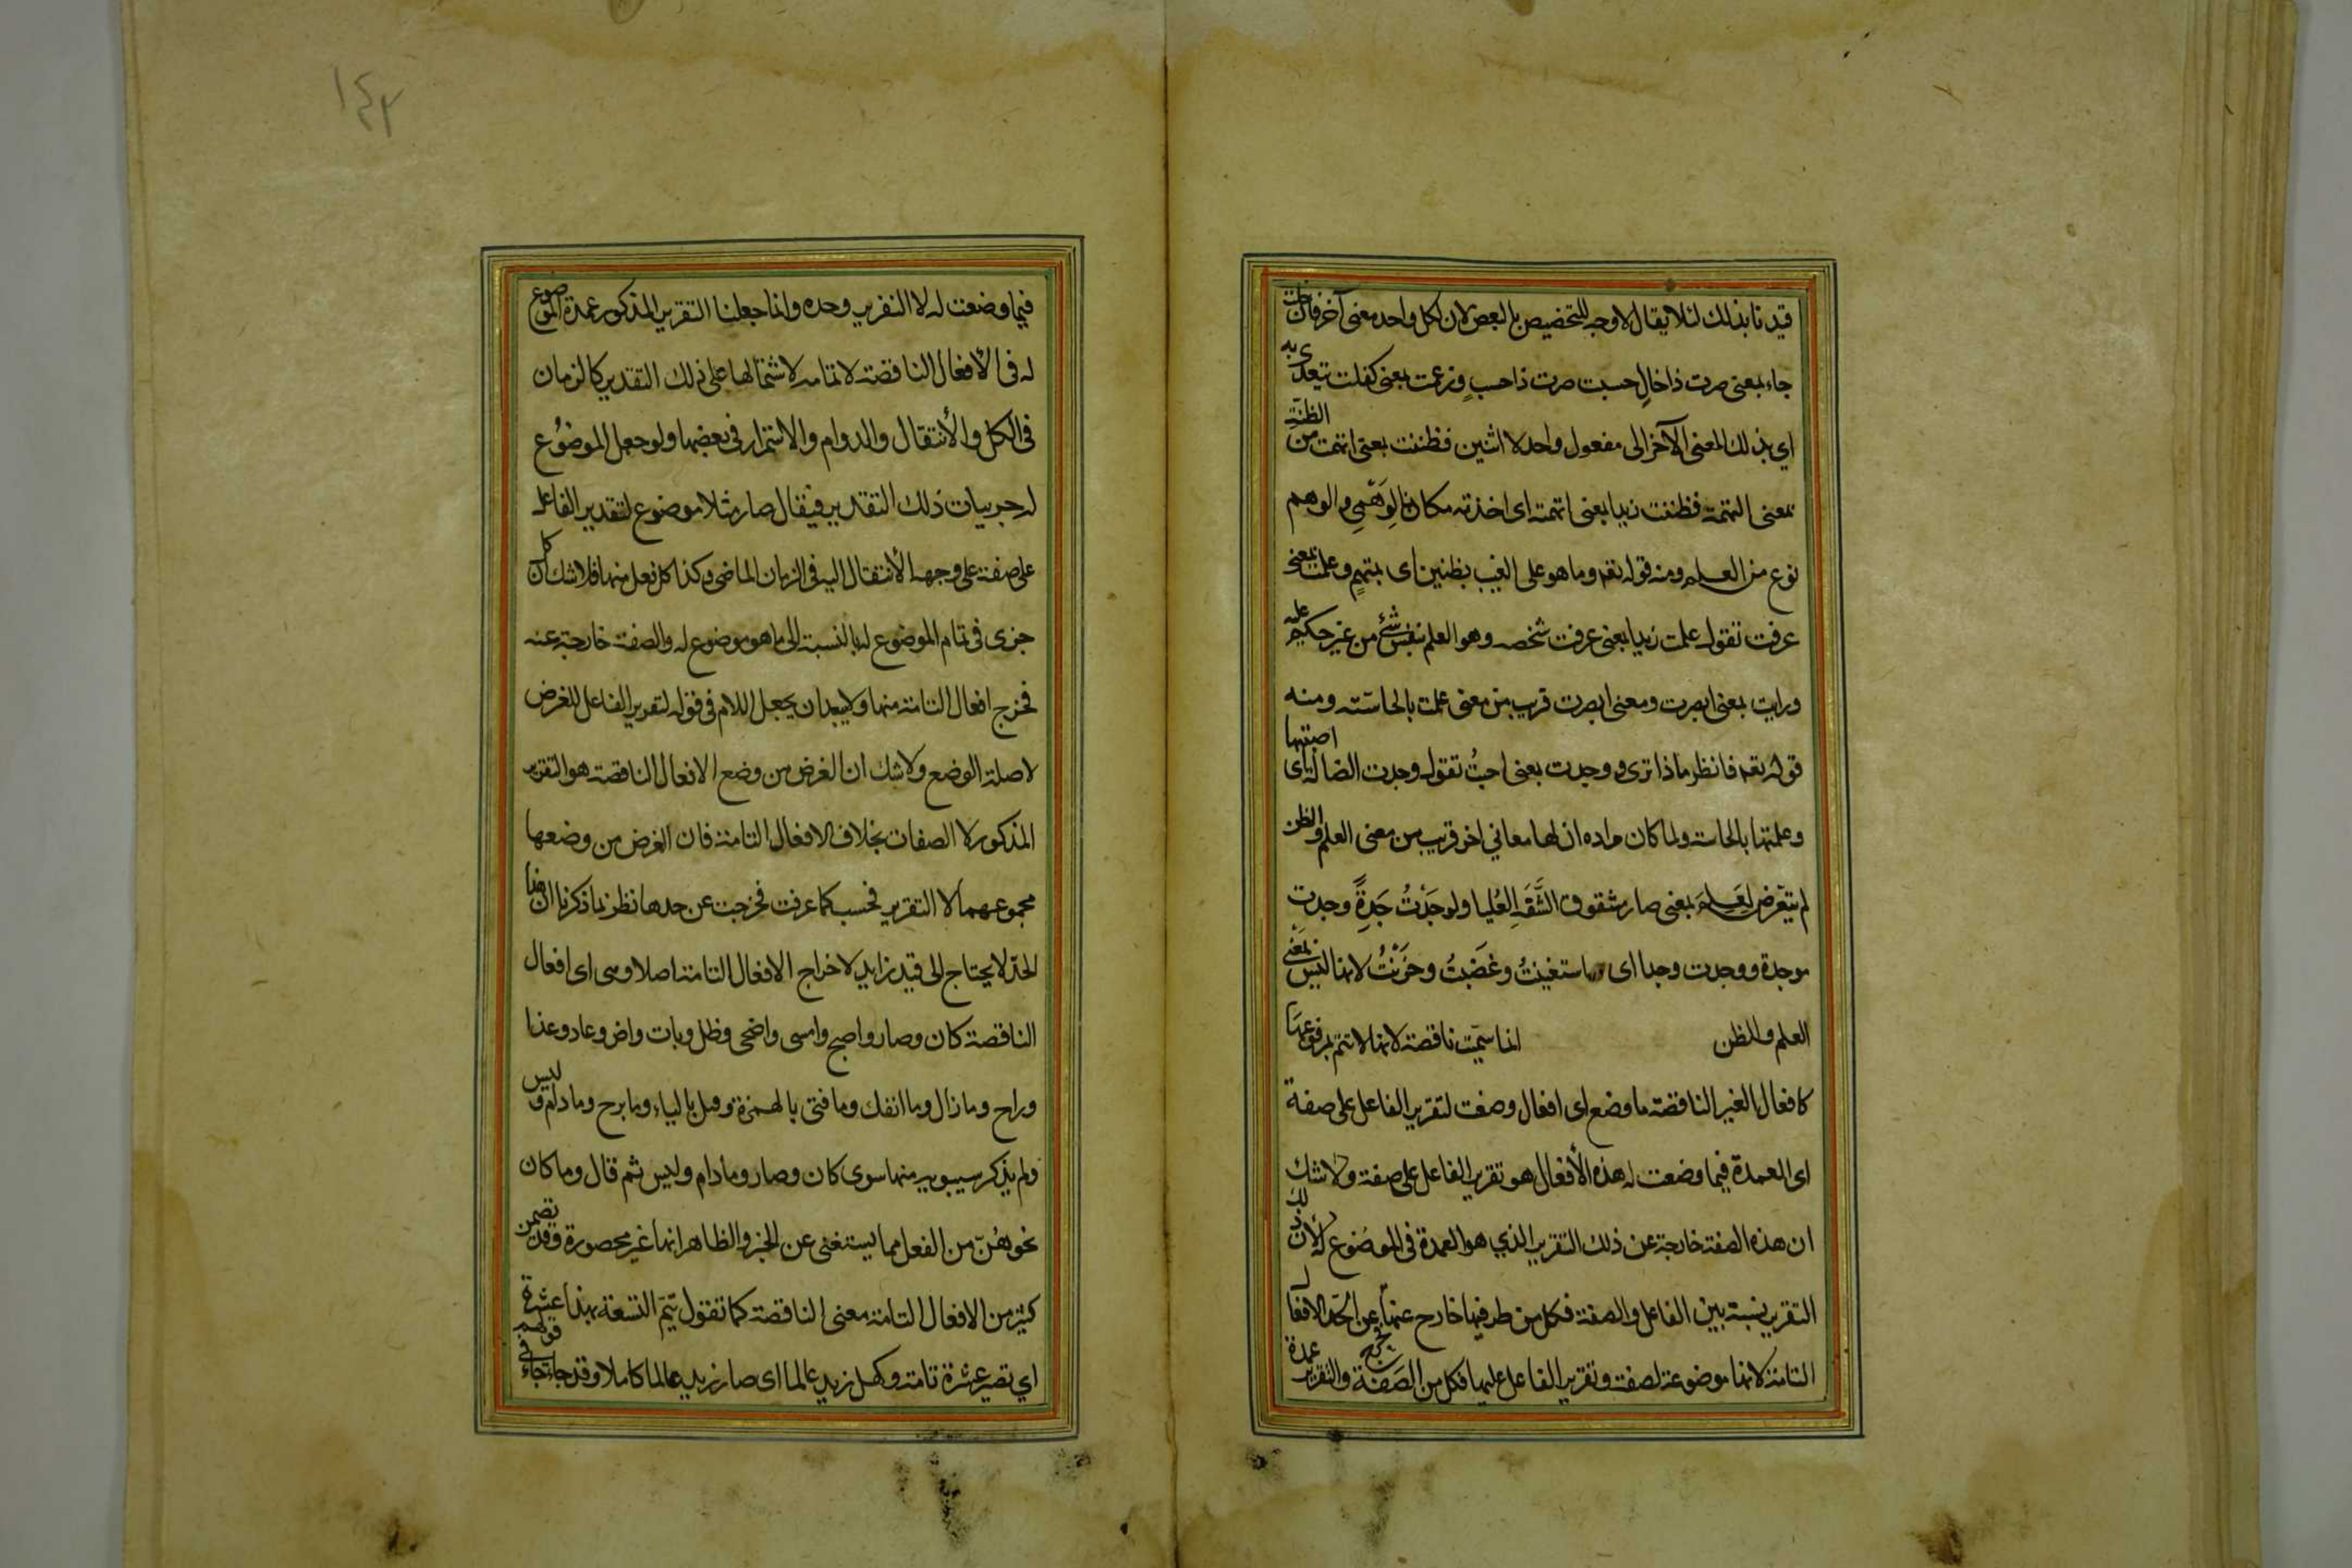 قيدنا بذلك لئلا يقال لا وجه للتخصيص بالبعض لان لكل واحد معنى آخر فان خلت
جاء بمعنى صرت ذا خالٍ حسبت صرت ذا حسبٍ وزعمت بمعنى كفلت يتعدى به
اي بذلك المعنى الآخر الى مفعول واحد لا اثنين فظننت بمعنى اتهمت من الظنّة
بمعنى التهمة فظننت زيدا بمعنى اتهمته اى اخذته مكانا لِوَهْمِي والوهم
نوع من العلم ومنه قوله تعه وما هو على الغيب بظنين اى بمتهمٍ وعلمت بمعنى
عرفت تقول علمت زيدا بمعنى عرفت شخصه وهو العلم بنفس شئ من غير حكم عليه
ورايت بمعنى ابصرت ومعنى ابصرت قريب من معنى علمت بالحاسّة ومنه
قوله تعه فانظر ماذا ترى ووجدت بمعنى اصبتُ تقول وجدت الضالة اى اصبتها
وعلمتها بالحاسة ولما كان مراده ان لها معاني اخر قريب من معنى العلم والظن
لم يتعّرض لِعَلِمَ بمعنى صار مشقوق الشَّفَةِ العُليا ولوجَدْتُ جَدِةً وجدت
موجدة ووجدت وجدا اى استغنيتُ وغَضَبتُ وحَزَنْتُ لانها ليس بمعنى
العلم والظن انما سمّيت ناقصة لانها لا تتمّ بمرفوعها
كافعال الغير الناقصة ما وضع اى افعال وضعت لتقرير الفاعل على صفة
اى العمدة فيما وضعت له هذه الأفعال هو تقرير الفاعل على صفة ولا شك
ان هذه الصفة خارجة عن ذلك التقرير الذي هو العمدة فى الموضوع له لأن ذلك
التقرير نسبة بين الفاعل والصفة فكل من طرفيها خارج عنها عن الحّد الافعال
التامة لانها موضوعة لصفة وتقرير الفاعل عليها فكل من الصَفَة والتقرير عمدة
١٤٢
فيما وضعت له لا التقرير وحده وانما جعلنا التقرير المذكور عمدة الموضوع
له فى الأفعال الناقصة لا تمامه لاشتمالها على ذلك التقدير كالزمان
فى الكل والأنتقال والدوام والاستمرار فى بعضها ولو جعل الموضوُع
له جزييات ذلك التقدير فيقال صار مثلا موضوع لتقدير الفاعل
على صفة على وجه الأنتقال اليه فى الزمان الماضى وكذا كل فعل منها فلا شك ان كل
جزى فى تمام الموضوع له بالنسبة الى ما هو موضوع له والصفة خارجة عنه
فخرج افعال التامة منها ولا يبعد ان يجعل اللام فى قوله لتقرير الفاعل للغرض
لا صلة الوضع ولا شك ان الغرض من وضع الافعال الناقصة هو التقرير
المذكور لا الصفات بخلاف الافعال التامة فان الغرض من وضعها
مجموعهما لا التقرير فحسب كما عرفت فخرجت عن حدها نظر لما ذكرنا ان هذا
الحّد لا يحتاج الى قيد زايد لاخراج الافعال التامة اصلا وهى اى افعال
الناقصة كان وصار واصبح وامسى واضحى وظل وبات واض وعاد وغدا
وراح وما زال وما انفك وما فتى بالهمزة وقيل بالياء وما برح وما دام وليس
ولم يذكر سيبويه منها سوى كان وصار وما دام وليس ثم قال وما كان
نحوهُنّ من الفعل مما يستغنى عن الخبر والظاهر انها غير محصورة وقد تضمن
كثير من الافعال التامة معنى الناقصة كما تقول تتمّ التسعة بهذا عشرة
اي تصير عشرة تامة وكمل زيد عالما اى صار زيد عالما كاملا وقد جاء جاءت فى قولهم